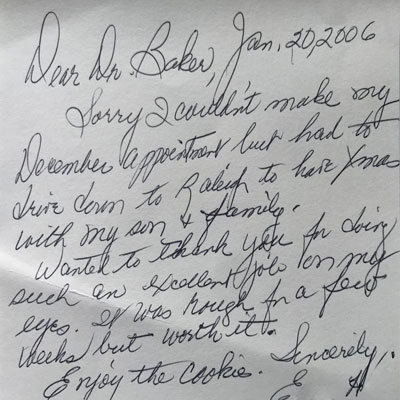 Dear Dr. Baker, Jan. 20, 2006
Sorry I couldn't make my
December appointment but had to
drive down to Raleigh to have Xmas
with my son & family.
Wanted to thank you for doing
such an excellent job on my
eyes. It was rough for a few
weeks but worth it.
Enjoy the cookies. Sincerely,
E H